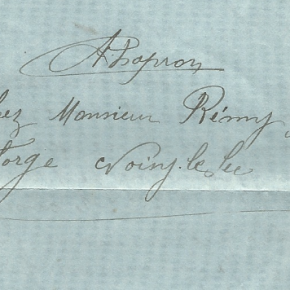 A Chapron
hez Monsieur Rémy
forge Noisy-le-Sec